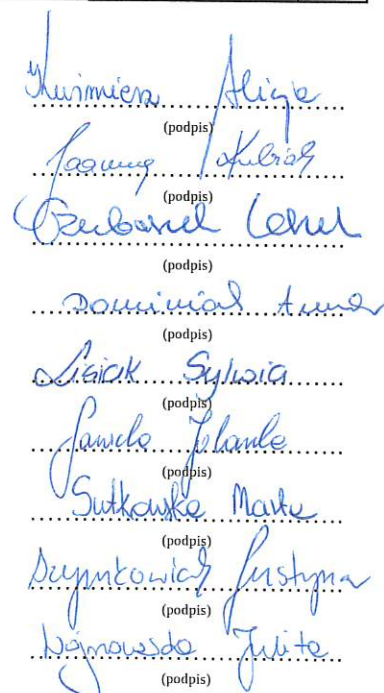 Kuśmierz Alicja
(podpis)
Joanna Kubiak
(podpis)
(podpis)
Dominiak Anna
(podpis)
Lisiak Sylwia
(podpis)
Gawela Jolanta
(podpis)
Sutkowska Marta
(podpis)
Szymkowiak Justyna
(podpis)
Wojnowska Julita
(podpis)